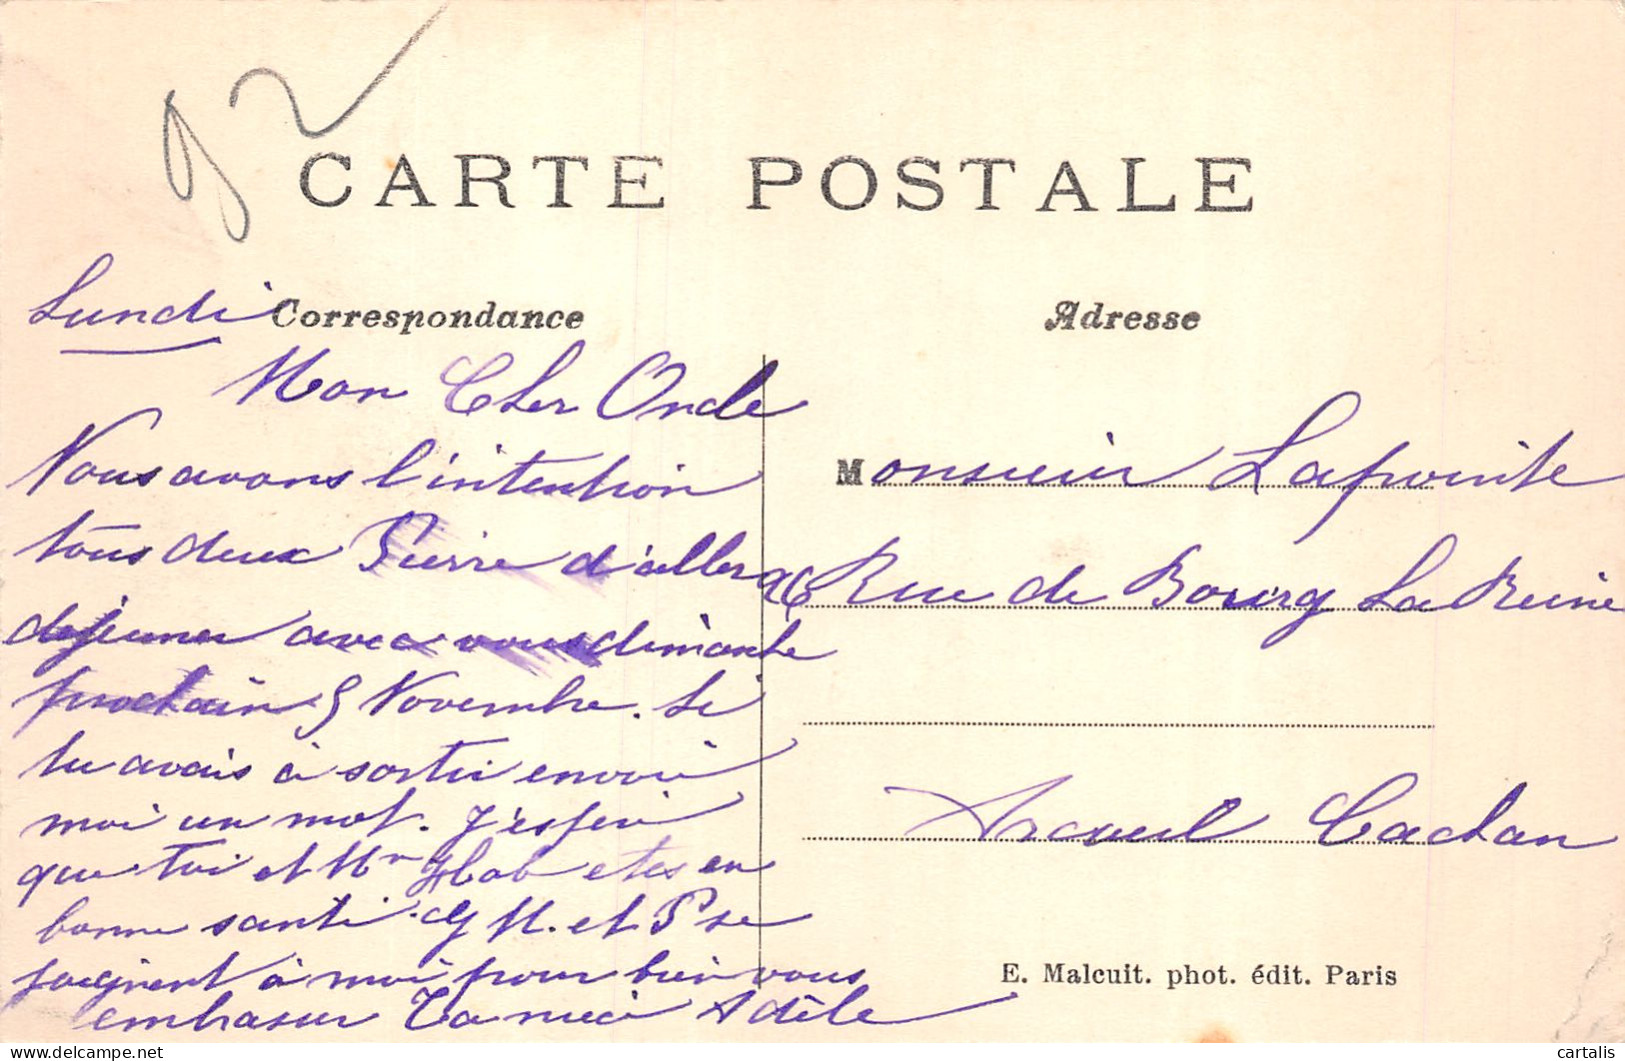 92
CARTE POSTALE
Lundi Correspondance
Mon Cher Oncle
Nous avons l'intention
tous deux Pierre d'aller
dejeuner avec vous dimanche
prochain 5 Novembre. Si
tu avais à sortir envoie
moi un mot. J'espère
que toi et Mr êtes en
bonne santé. M. et
joignent à moi pour bien vous
embrasser Ta nièce Adèle
Adresse
Monsieur Lapointe
Rue de Bourg La Reine
Arcueil Cachan
E. Malcuit. phot. édit. Paris
cartalis